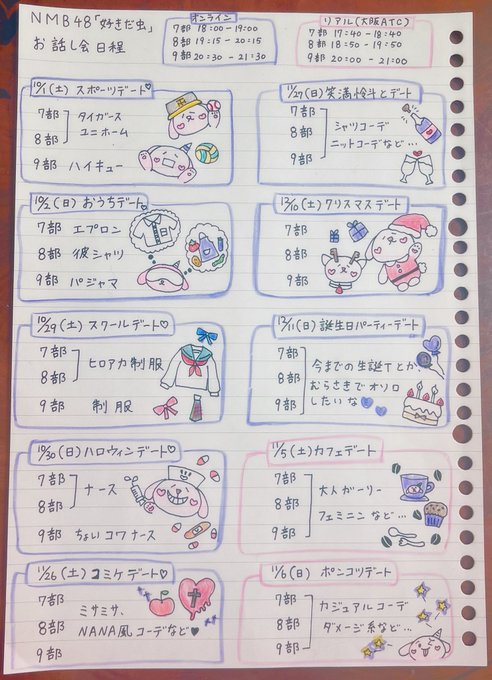 NMB48「好きだ虫」
お話し会日程
オンライン
7部 18:00-19:00
8部 19:15-20:15
9部 20:30-21:30
リアル(大阪ATC)
7部 17:40-18:40
8部 18:50-19:50
9部 20:00-21:00
10/1(土)スポーツデート♡
7部
8部
タイガース
ユニホーム
9部 ハイキュー
10/2(日)おうちデート♡
7部 エプロン
8部 彼シャツ
9部 パジャマ
10/29(土)スクールデート♡
7部
8部
ヒロアカ制服
9部 制服
10/30(日)ハロウィンデート♡
7部
8部
ナース
9部 ちょいコワナース
11/26(土)コミケデート♡
7部
8部
9部
ミサミサ、
NANA風コーデなど♥
11/27(日)笑満怜斗とデート
7部
8部
9部
シャツコーデ
ニットコーデなど…
12/10(土)クリスマスデート
7部
8部
9部
12/11(日)誕生日パーティーデート
7部
8部
9部
今までの生誕Tとか
むらさきでオソロ
したいな💜💜
11/5(土)カフェデート
7部
8部
9部
大人ガーリー
フェミニンなど…
11/6(日)ポンコツデート
7部
8部
9部
カジュアルコーデ
ダメージ系など…